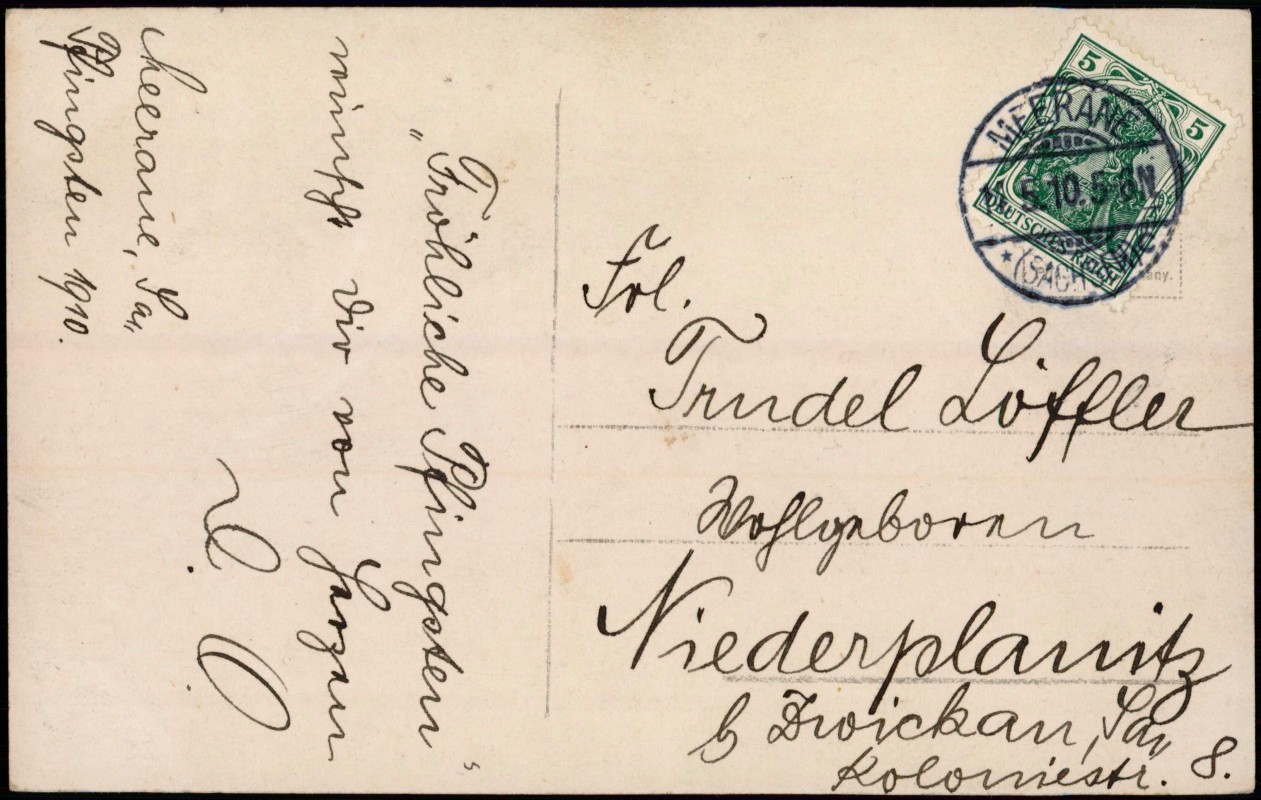 Meerane, Sa.,
Pfingsten 1910.
"Fröhliche Pfingsten"
wünscht Dir von Herzen
L. O.
5 5
DEUTSCHES REICH
MEERANE
5.10. 5-6N
* (SACHSEN)
any.
Frl.
Trudel Löffler
Wohlgeboren
Niederplanitz
b Zwickau, Sa.,
Koloniestr. 8.